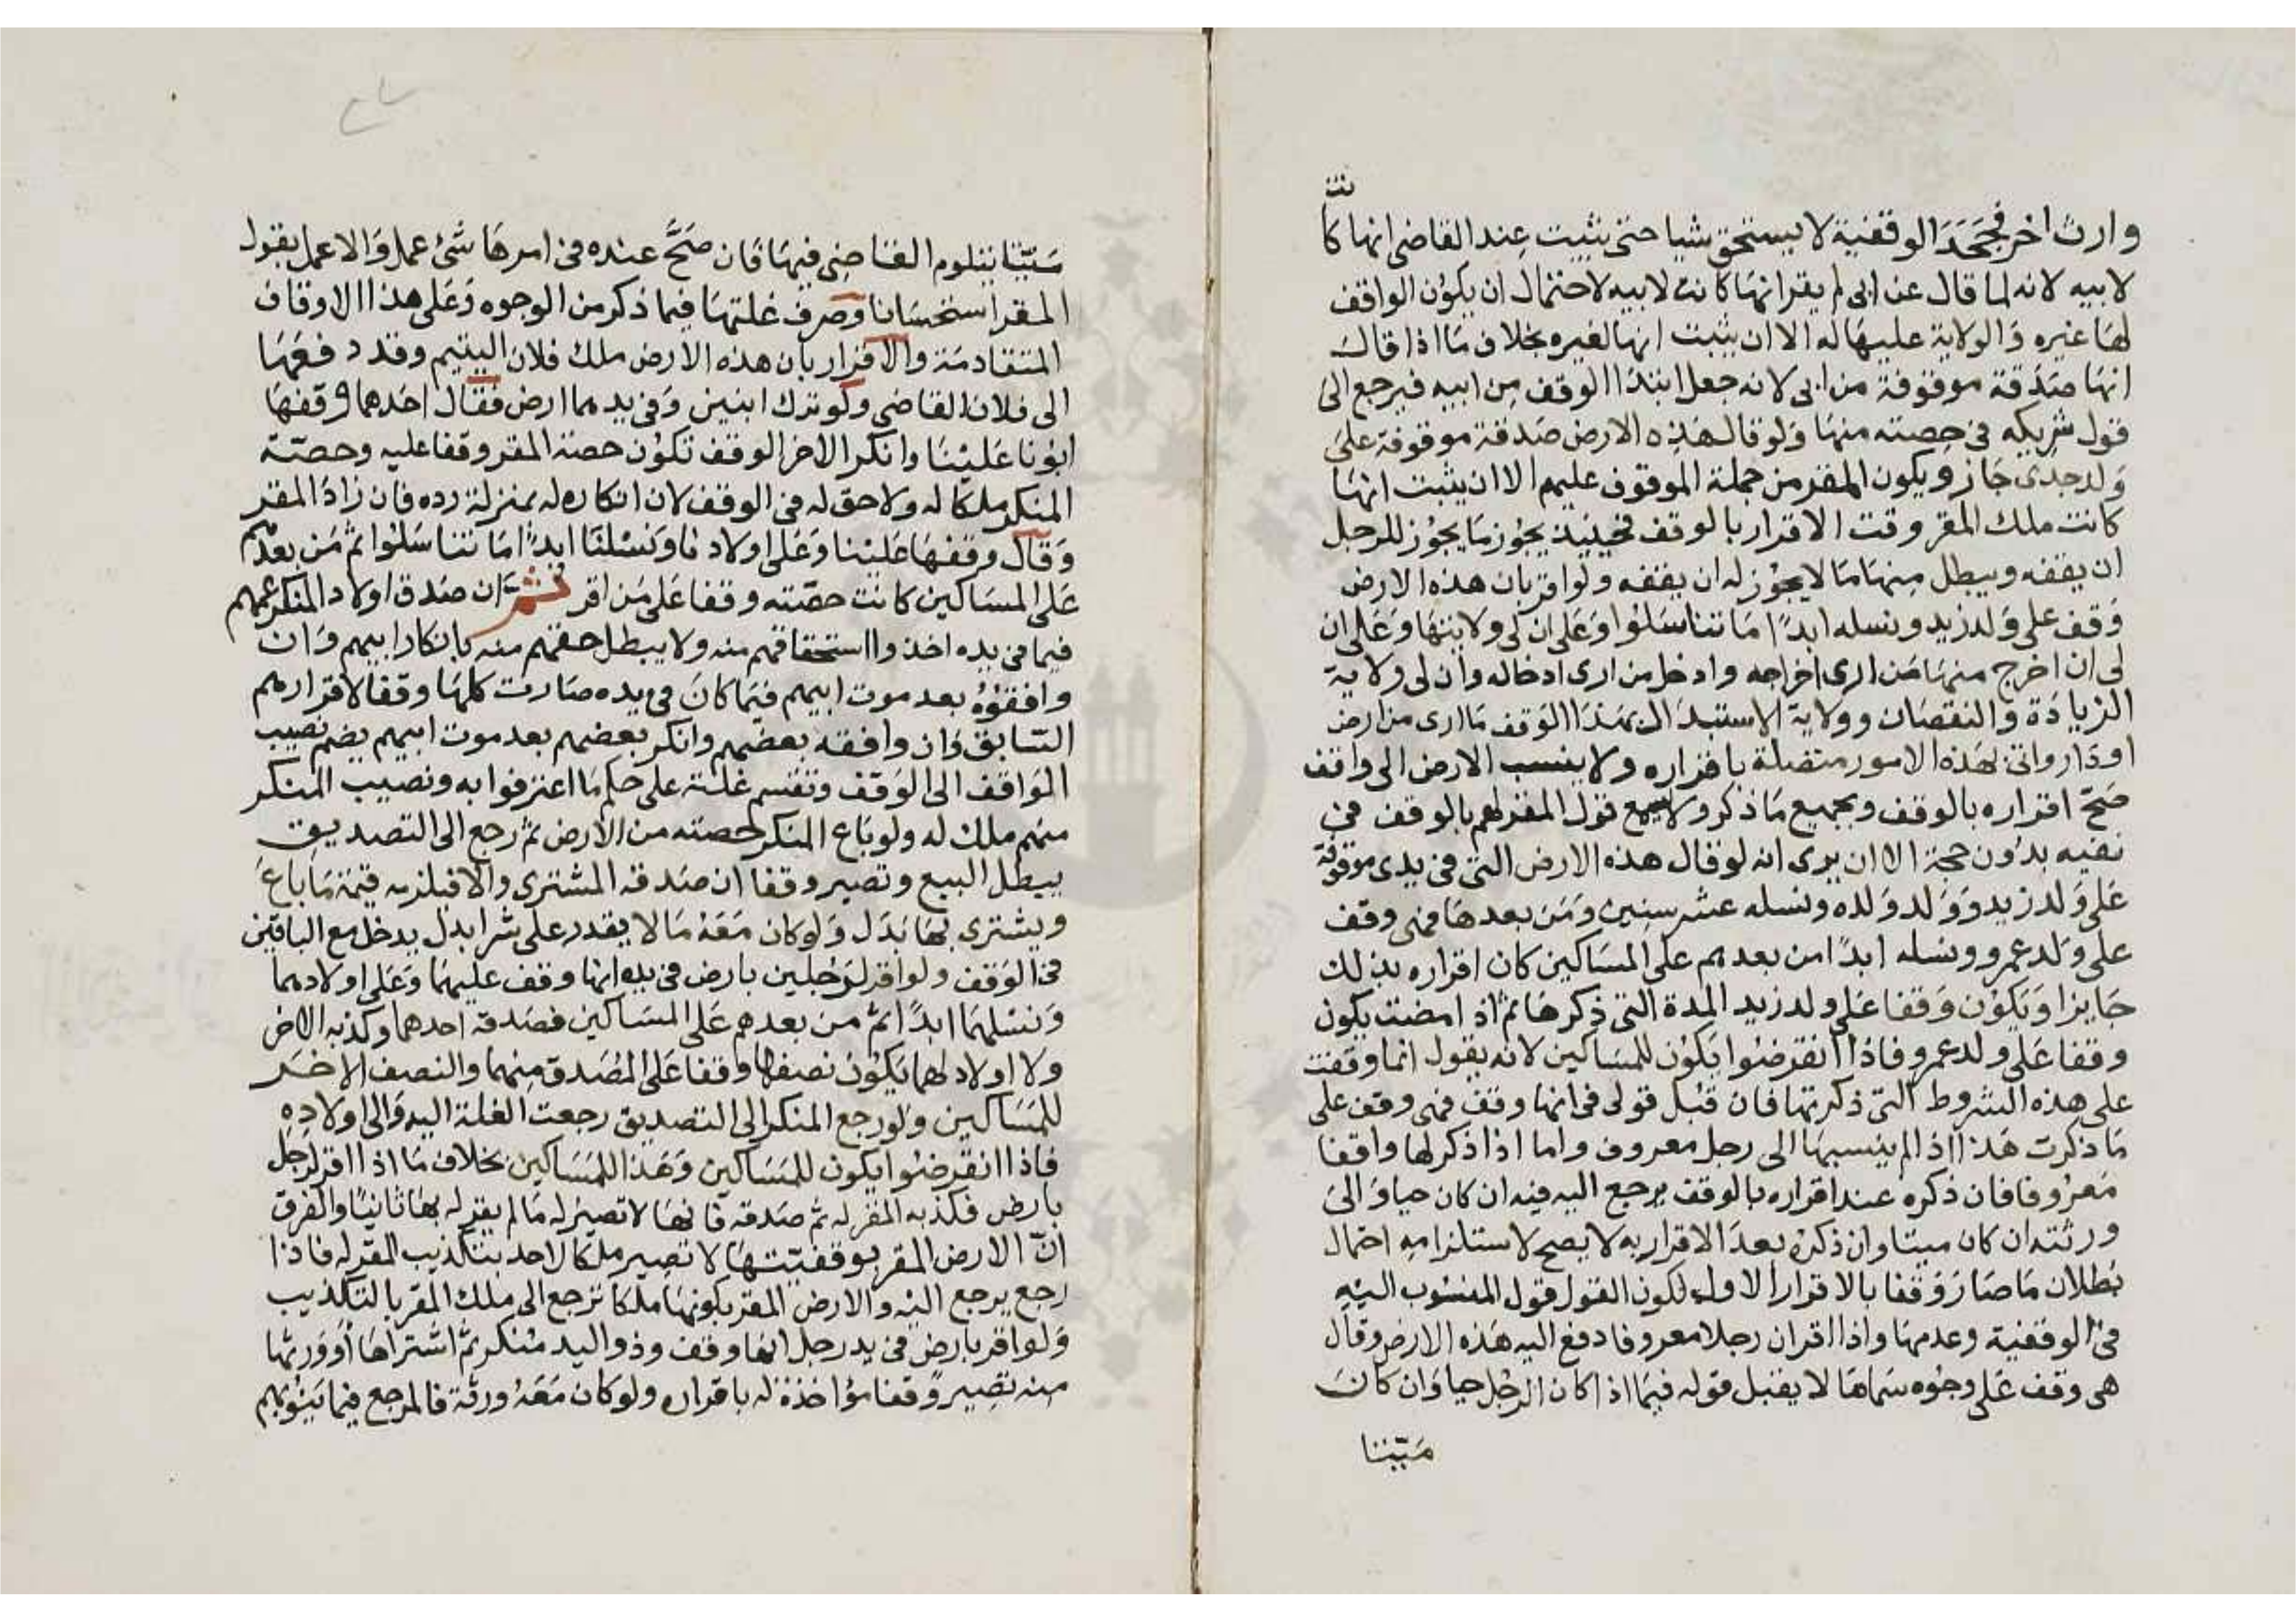 وارث اخر فجحد الوقفية لا يستحق شيا حتى يثبت عند القاضى انها كانت
لابيه لانه لما قال عن ابى لم يقر انها كانت لابيه لاحتمال ان يكون الواقف
لها غيره والولاية عليها له الا ان يثبت انها لغيره بخلاف ما اذا قال
انها صدقة موقوفة من ابى لانه جعل ابتدا الوقف من ابيه فيرجع الى
قول شريكه فى حصته منها ولو قال هذه الارض صدقة موقوفة على
ولد جدى جاز ويكون المقر من جملة الموقوف عليهم الا ان يثبت انها
كانت ملك المقر وقت الاقرار بالوقف فحينيذ يجوز ما يجوز للرجل
ان يقفه ويبطل منها ما لا يجوز له ان يقفه ولو اقر بان هذه الارض
وقف على ولد زيد ونسله ابدًا ما تناسلوا وعلى ان لى ولايتها وعلى ان
لى ان اخرج منها من ارى اخراجه وادخل من ارى ادخاله وان لى ولاية
الزيادة والنقصان وولاية الاستبدال بهذا الوقف ما ارى من ارض
او دار واتى بهذه الامور متصلة باقراره ولا ينسب الارض الى واقف
صح اقراره بالوقف وبجميع ما ذكر ولا يسمع قول المقر لهم بالوقف فى
نفيه بدون حجة الا ان يرى انه لو قال هذه الارض التى فى يدى موقوفة
على ولد زيد وولد ولده ونسله عشر سنين ومن بعدها فهى وقف
على ولد عمرو ونسله ابدًا من بعدهم على المساكين كان اقراره بذلك
جايزا وتكون وقفا على ولد زيد المدة التى ذكرها ثم اذا مضت يكون
وقفا على ولد عمرو فاذا انقرضوا يكون للمساكين لانه يقول انما وقفت
على هذه الشروط التى ذكرتها فان قبل قولى فى انها وقف فهى وقف على
ما ذكرت هذا اذا لم ينسبها الى رجل معروف واما اذا ذكر لها واقفا
معروفا فان ذكره عند اقراره بالوقف يرجع اليه فيه ان كان حيا والى
ورثته ان كان ميتا وان ذكره بعد الاقرار به لا يصح لاستلزامه احتمال
بطلان ما صار وقفا بالاقرار الاول لكون القول قول المنسوب اليه
فى الوقفية وعدمها واذا اقر ان رجلا معروفا دفع اليه هذه الارض وقال
هى وقف على وجوه سماها لا يقبل قوله فيما اذا كان الرجل حيا وان كان
ميتا
ميتا يتلوم القاضى فيها فان صح عنده فى امرها شئ عمل والا عمل بقول
المقر استحسانا وصرف غلتها فيما ذكر من الوجوه وعلى هذا الاوقاف
المتقادمة والاقرار بان هذه الارض ملك فلان اليتيم وقد دفعها
الى فلان القاضى ولو ترك ابنين وفى يدهما ارض فقال احدهما وقفها
ابونا علينا وانكر الاخر الوقف تكون حصة المقر وقفا عليه وحصة
المنكر ملكا له ولا حق له فى الوقف لان انكاره له بمنزلة رده فان زاد المقر
وقال وقفها علينا وعلى اولادنا ونسلنا ابدًا ما تناسلوا ثم من بعدهم
على المساكين كانت حصته وقفا على من اقر ثم ان صدق اولاد المنكر عمهم
فيما فى يده اخذوا استحقاقهم منه ولا يبطل حقهم منه بانكار ابيهم وان
وافقوه بعد موت ابيهم فيما كان فى يده صارت كلها وقفا لاقرارهم
السابق وان وافقه بعضهم وانكر بعضهم بعد موت ابيهم يضم نصيب
الموافق الى الوقف وتقسم غلته على حكم ما اعترفوا به ونصيب المنكر
منهم ملك له ولو باع المنكر لحصته من الارض ثم رجع الى التصديق
يبطل البيع وتصير وقفا ان صدقه المشترى والا فيلزمه قيمة ما باع
ويشترى بها بدل ولو كان معه ما لا يقدر على شرا بدل يدخل مع الباقين
فى الوقف ولو اقر لرجلين بارض فى يده انها وقف عليهما وعلى اولادهما
ونسلهما ابدًا ثم من بعدهم على المساكين فصدقه احدهما وكذبه الاخر
ولا اولاد لهما يكون نصفها وقفا على المصدق منهما والنصف الاخر
للمساكين ولو رجع المنكر الى التصديق رجعت الغلة اليه والى اولاده
فاذا انقرضوا يكون للمساكين وهذا للمساكين بخلاف ما اذا اقر لرجل
بارض فكذبه المقر له ثم صدقه فانها لا تصير له ما لم يقر له بها ثانيًا والفرق
ان الارض المقر بوقفيتها لا تصير ملكا لاحد بتكذيب المقر له فاذا
رجع يرجع اليه والارض المقر بكونها ملكا ترجع الى ملك المقر بالتكذيب
ولو اقر بارض فى يد رجل انها وقف وذو اليد منكر ثم اشتراها او ورثها
منه تصير وقفا مؤاخذة له باقراره ولو كان معه ورثة فالمرجع فيما ينوبهم